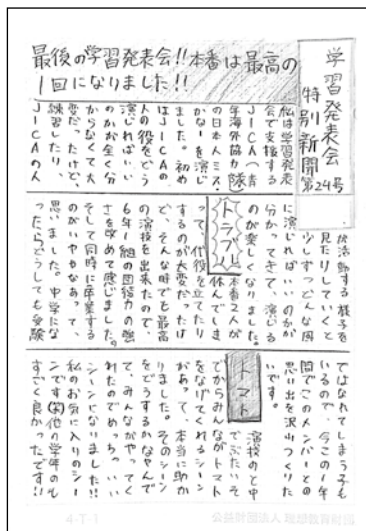 最後の学習発表会!!本番は最高の
1回になりました!!
学習発表会
特別新聞
第24号
私は学習発表
会で支援する
JICA(青
年海外協力隊)
の日本人ミス・
かなーを演じ
ました。初め
はJICAの
人の役をどう
演じればいい
のかが全く分
からなくて大
変だったけど、
練習したり、
JICAの人
が活動する様子を
見たりしていくと
少しずつどんな風
に演じればいいのかが
分かってきて、演じる
のが楽しくなりました。
トラブル
本番2人が
休んでしま
って、代役を立てたり
するのが大変だったけ
ど、そんな時でも最高
の演技を出来たので、
6年 組の団結力の強
さを改めて感じました。
そして同時に卒業する
のがいやもなあって、
思いました。中学にな
ったらどうしても受験
ではなれてしまう子も
いるので、今この1年
間でこのメンバーとの
思い出を沢山つくりた
いです。
トマト
演技のと中
でぶたいそ
でからみんながトマト
をなげてくれるシーン
があって、本当に助か
りました。そのシーン
をどうするかなやんで
て、みんながやってく
れたのでめっちゃいい
シーンになりました!!
私のお気に入りのシー
ンです(笑)他の学年のも
すごく良かったです!!
4-T-1
公益財団法人 理想教育財団